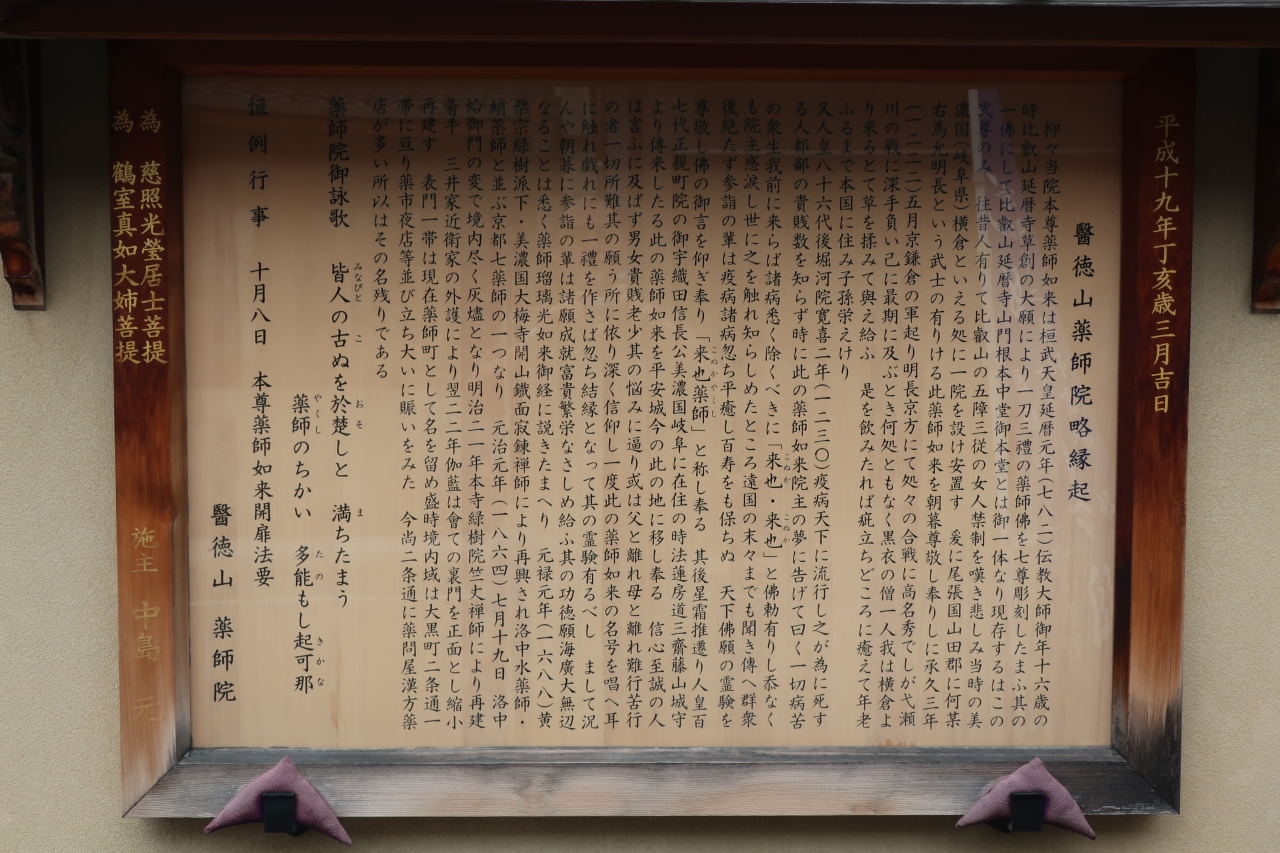 平成十九年丁亥歳三月吉日
醫徳山薬師院略縁起
抑々当院本尊薬師如来は桓武天皇延暦元年(七八二)伝教大師御年十六歳の
時比叡山延暦寺草創の大願により一刀三禮の薬師佛を七尊彫刻したまふ其の
一佛にして比叡山延暦寺山門根本中堂御本堂とは御一体なり現存するはこの
弐尊のみ 往昔人有りて比叡山の五障三従の女人禁制を嘆き悲しみ当時の美
濃国(岐阜県)横倉といえる処に一院を設け安置す 爰に尾張国山田郡に何某
右馬允明長という武士の有りける此薬師如来を朝暮尊敬し奉りしに承久三年
(一二二二)五月京鎌倉の軍起り明長京方にて処々の合戦に高名秀でしが弋瀬
川の戦に深手負い己に最期に及ぶとき何処ともなく黒衣の僧一人我は横倉よ
り来るとて草を揉みて與え給ふ 是を飲みたれば疵立ちどころに癒えて年老
ふるまで本国に住み子孫栄えけり
又人皇八十六代後堀河院寛喜二年(一二三〇)疫病天下に流行し之が為に死す
る人都鄙の貴賎数を知らず時に此の薬師如来院主の夢に告げて曰く一切病苦
の衆生我前に来らば諸病悉く除くべきに「来也・来也」と佛勅有りし忝なく
も院主感涙し世に之を触れ知らしめたところ遠国の末々までも聞き傳へ群衆
後絶たず参詣の輩は疫病諸病忽ち平癒し百寿をも保ちぬ 天下佛願の霊験を
尊敬し佛の御言を仰ぎ奉り「来也薬師」と称し奉る 其後星霜推遷り人皇百
七代正親町院の御宇織田信長公美濃国岐阜に在住の時法蓮房道三齋藤山城守
より傳来したる此の薬師如来を平安城今の此の地に移し奉る 信心至誠の人
は言ふに及ばず男女貴賎老少其の悩みに逼り或は父と離れ母と離れ難行苦行
の者一切所難其の願う所に依り深く信仰し一度此の薬師如来の名号を唱へ耳
に触れ戯れにも一禮を作さば忽ち結縁となって其の霊験有るべし まして況
んや朝暮に参詣の輩は諸願成就富貴繁栄なさしめ給ふ其の功徳願海廣大無辺
なることは悉く薬師瑠璃光如来御経に説きたまへり 元禄元年(一六八八)黄
檗宗緑樹派下・美濃国大梅寺開山鐵面寂錬禅師により再興され洛中水薬師・
蛸薬師と並ぶ京都七薬師の一つなり 元治元年(一八六四)七月十九日 洛中
蛤御門の変で境内尽く灰燼となり明治二一年本寺緑樹院竺丈禅師により再建
着手 三井家近衛家の外護により翌二二年伽藍は曾ての裏門を正面とし縮小
再建す 表門一帯は現在薬師町として名を留め盛時境内域は大黒町二条通一
帯に亘り薬市夜店等並び立ち大いに賑いをみた 今尚二条通に薬問屋漢方薬
店が多い所以はその名残りである
薬師院御詠歌 皆人の古ぬを於楚しと 満ちたまう
薬師のちかい 多能もし起可那
恒例行事 十月八日 本尊薬師如来開扉法要
醫徳山 薬師院
為 慈照光瑩居士菩提
為 鶴室真如大姉菩提
施主 中島 元